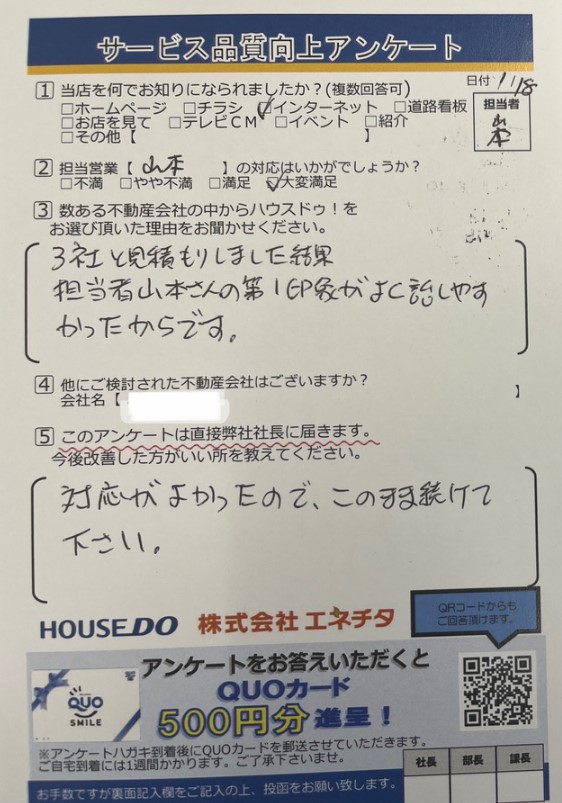 サービス品質向上アンケート
日付 1/18
担当者
山本
1 当店を何でお知りになられましたか？(複数回答可)
□ホームページ □チラシ ☑インターネット □道路看板
□お店を見て □テレビＣＭ □イベント □紹介
□その他【 】
2 担当営業【 山本 】の対応はいかがでしょうか？
□不満 □やや不満 □満足 ☑大変満足
3 数ある不動産会社の中からハウスドゥ！を
お選び頂いた理由をお聞かせください。
3社と見積もりしました結果
担当者山本さんの第1印象がよく話しやす
かったからです。
4 他にご検討された不動産会社はございますか？
会社名【 】
5 このアンケートは直接弊社社長に届きます。
今後改善した方がいい所を教えてください。
対応がよかったので、このまま続けて
下さい。
HOUSEDO 株式会社 エネチタ
QRコードからも
ご回答頂けます。
アンケートをお答えいただくと
QUOカード
500円分 進呈！
QUO
SMILE
※アンケートハガキ到着後にQUOカードを郵送させていただきます。
ご自宅到着には1週間かかります。ご了承下さいませ。
社長 部長 課長
お手数ですが裏面記入欄をご記入の上、投函をお願い致します。